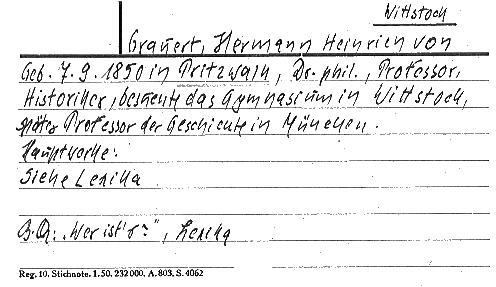 Wittstock
Grauert, Hermann Heinrich von
Geb. 7. 9. 1850 in Pritzwalk, Dr. phil., Professor,
Historiker, besuchte das Gymnasium in Wittstock,
später Professor der Geschichte in München.
Hauptwerke:
Siehe Lexika
B.Q: „Wer ist's?", Lexika
Reg. 10. Stichnote. 1. 50. 232 000. A. 803. S. 4062